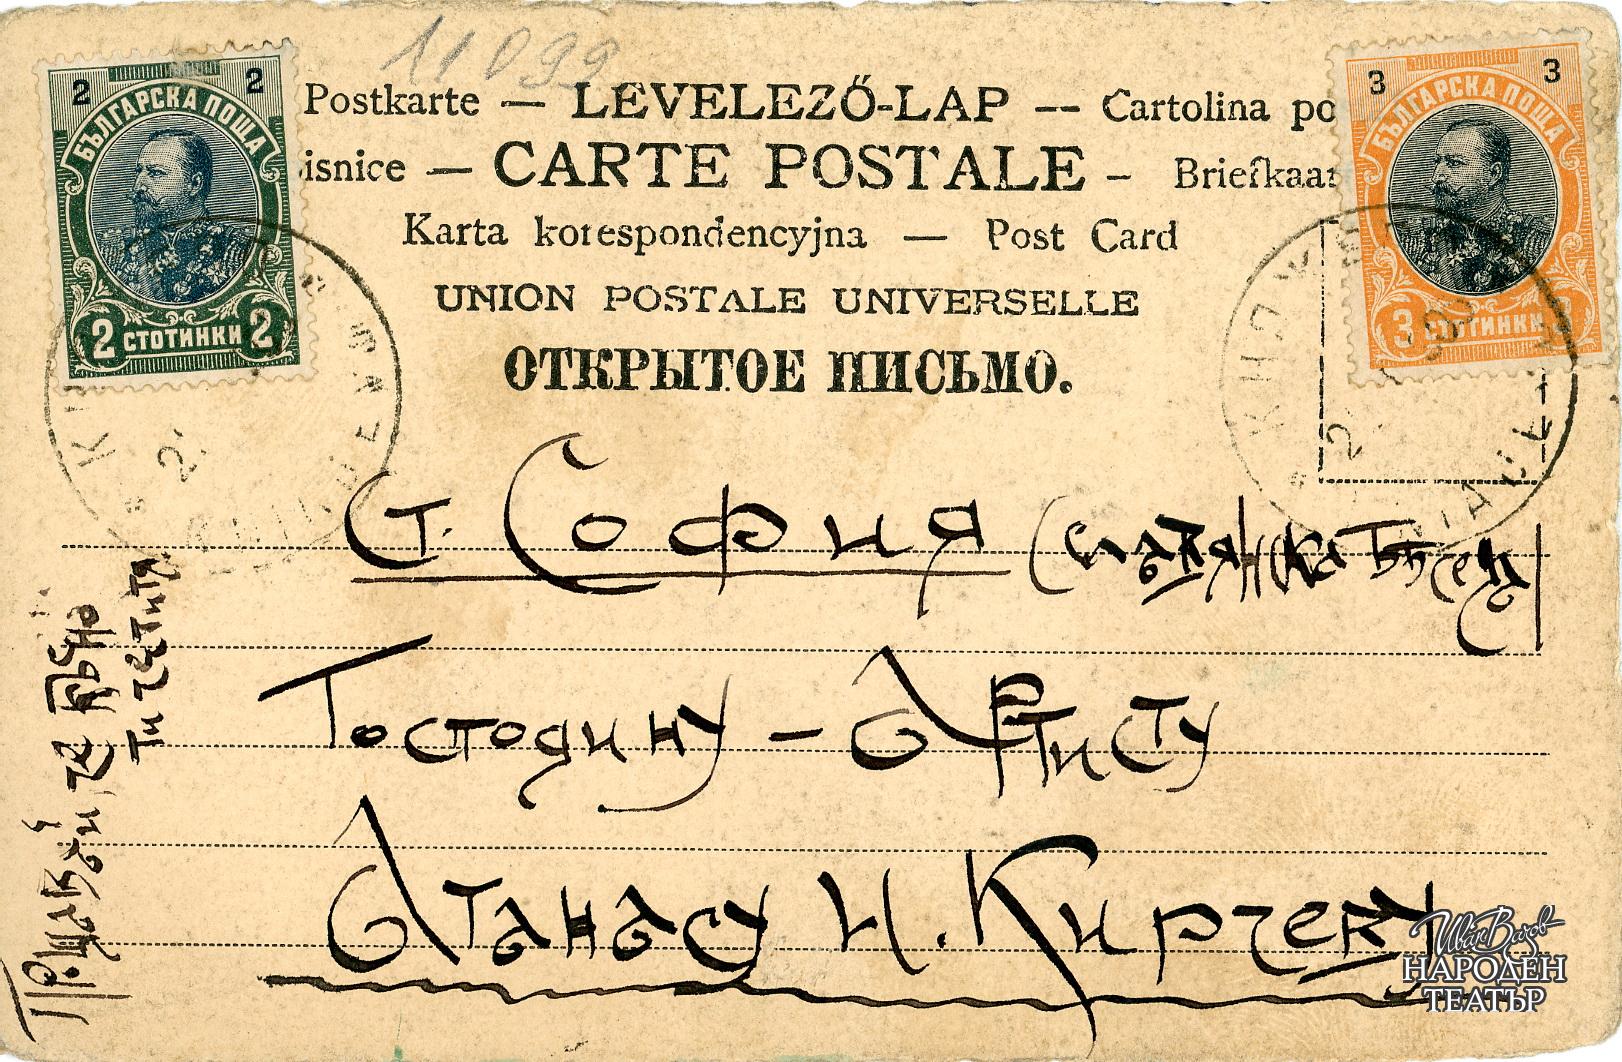 11099
2 2
БЪЛГАРСКА ПОЩА
2 СТОТИНКИ 2
3 3
БЪЛГАРСКА ПОЩА
3 СТОТИНКИ 3
Postkarte — LEVELEZŐ-LAP -- Cartolina po
isnice — CARTE POSTALE – Briefkaar
Karta korespondencyjna — Post Card
UNION POSTALE UNIVERSELLE
ОТКРЫТОЕ ПИСЬМО.
Ст. София (Славянска Бѣседа)
Господину – Артисту
Атанасу И. Кирчеву
Прощавай, че
ти честитя
Иван Вазов
НАРОДЕН
ТЕАТЪР